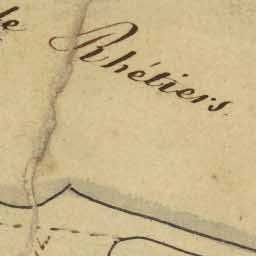 de Rhétiers.